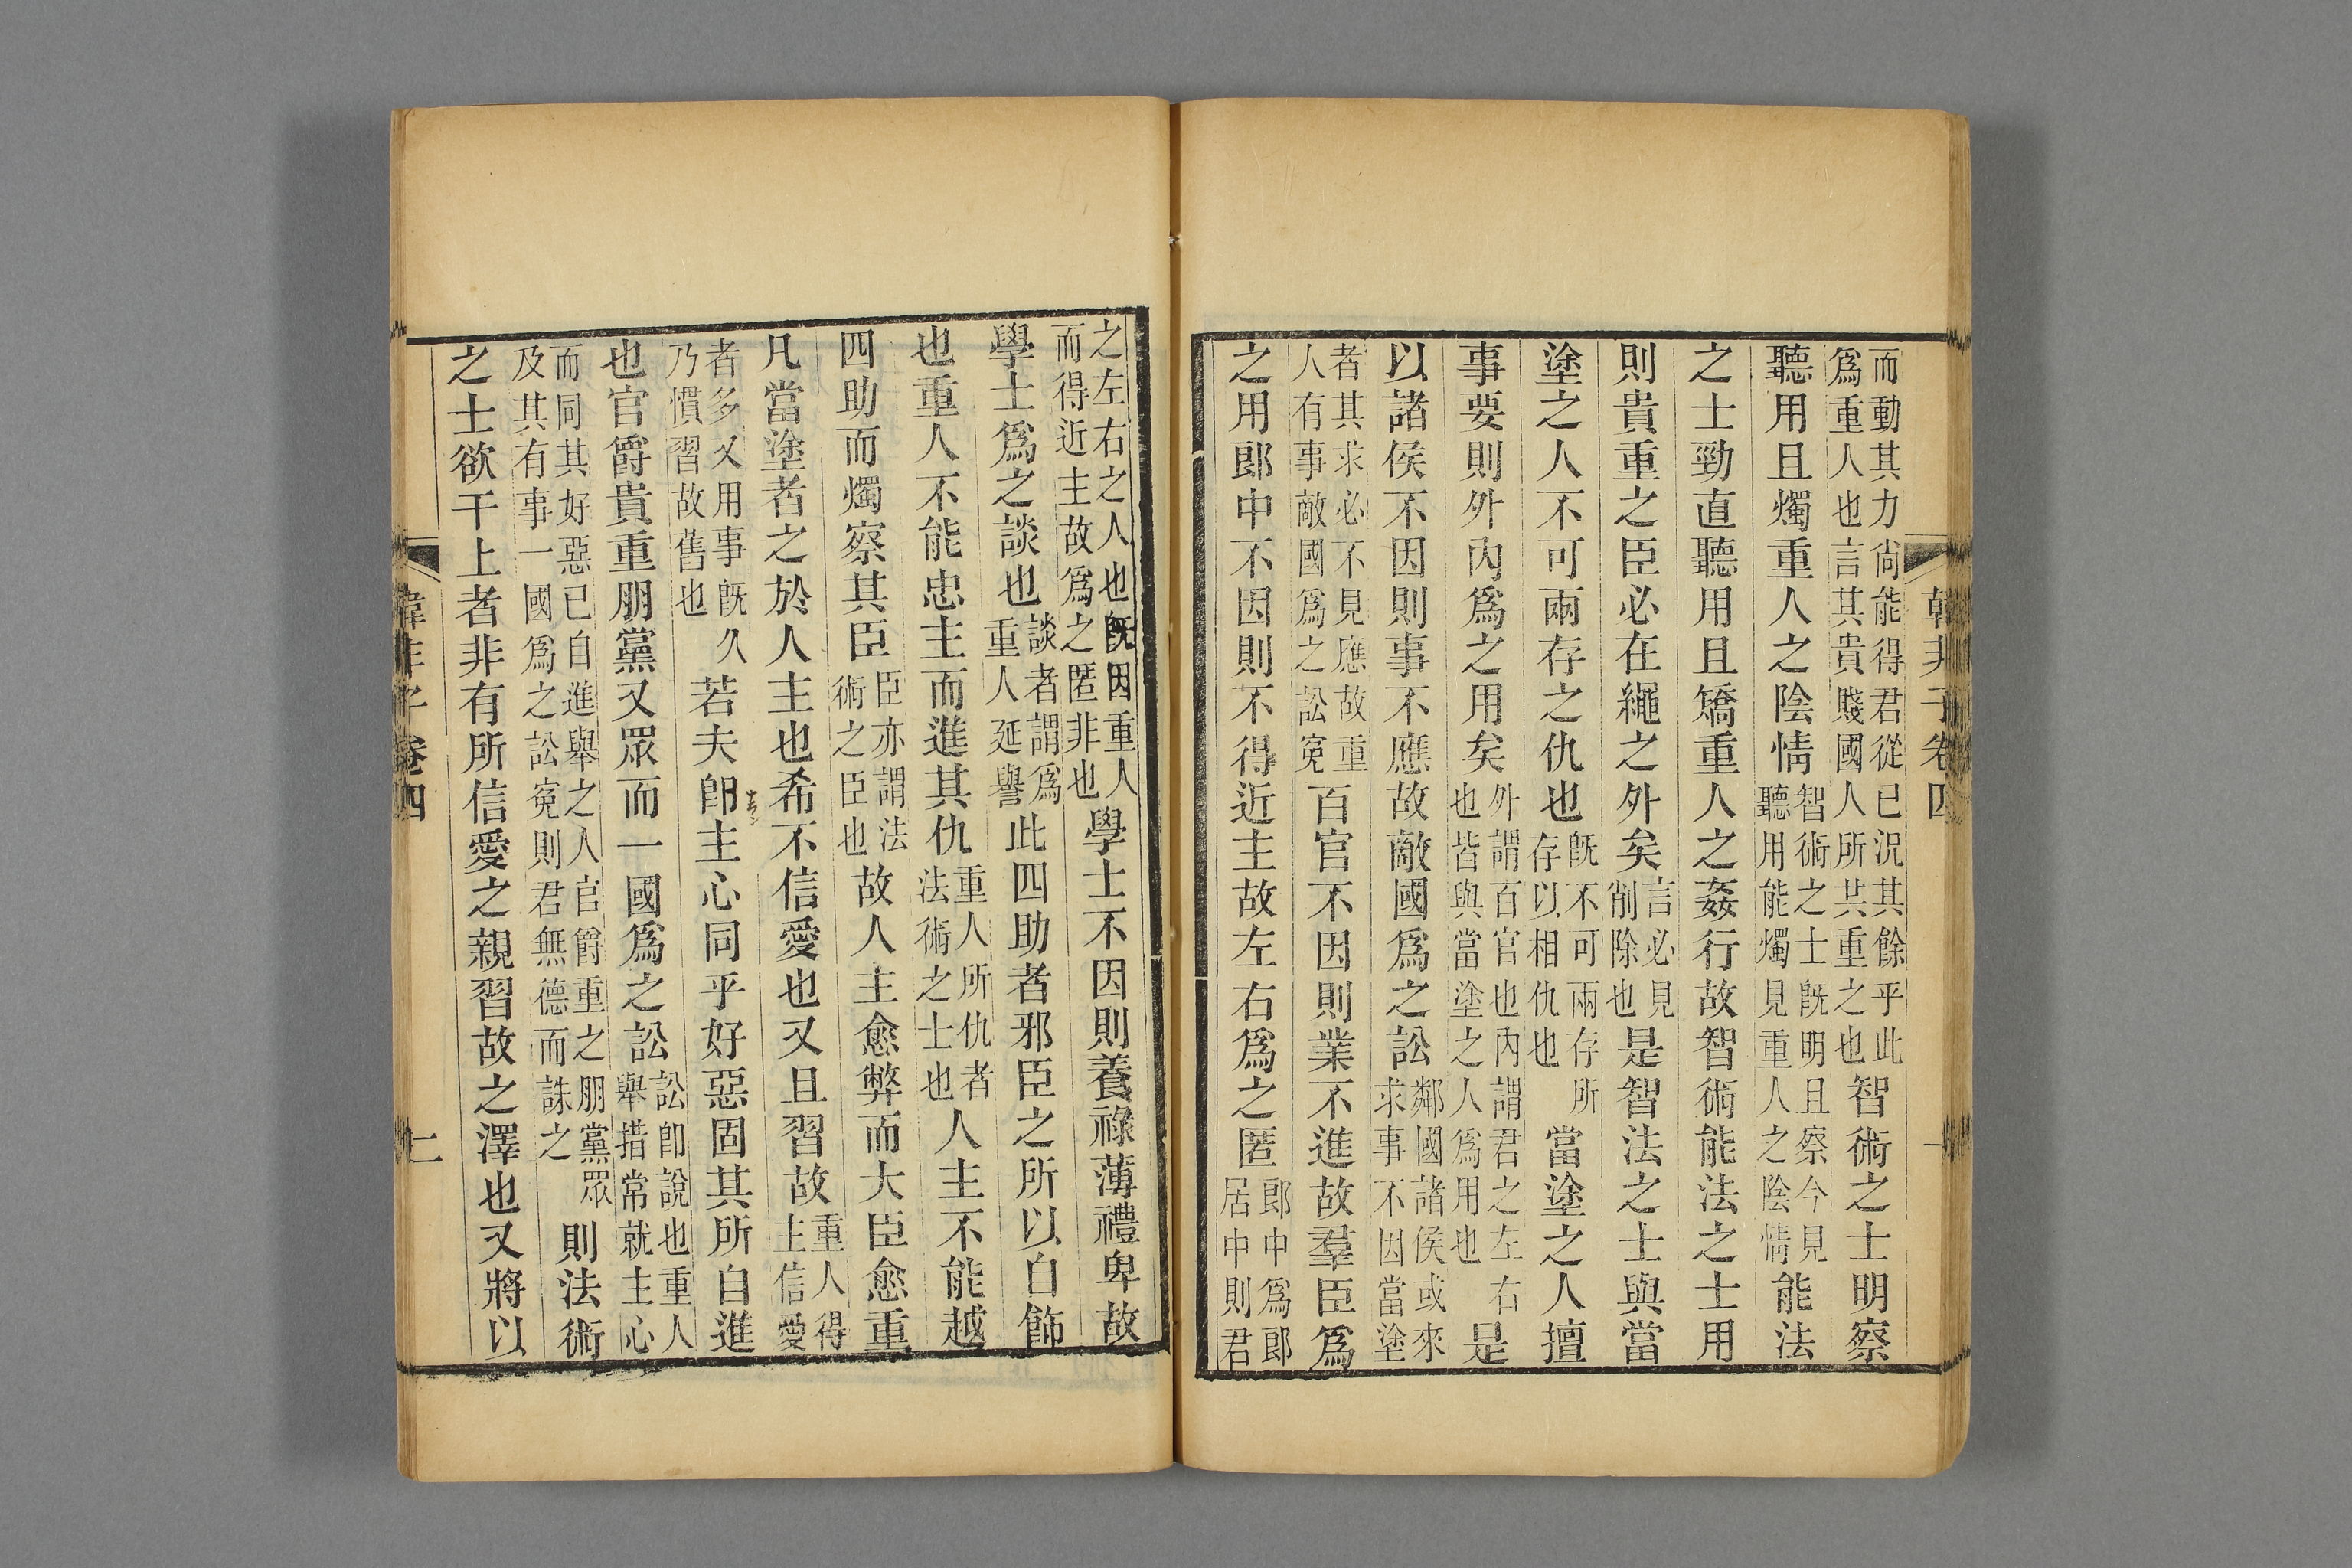 韓非子卷四 一
而動其力尙能得君從已況其餘乎此
爲重人也言其貴賤國人所共重之也智術之士明察
聽用且燭重人之陰情智術之士旣明且察今見聽用能燭見重人之陰情能法
之士勁直聽用且矯重人之姦行故智術能法之士用
則貴重之臣必在繩之外矣言必見削除也是智法之士與當
塗之人不可兩存之仇也旣不可兩存所存以相仇也當塗之人擅
事要則外內爲之用矣外謂百官也內謂君之左右也皆與當塗之人爲用也是
以諸侯不因則事不應故敵國爲之訟鄰國諸侯或來求事不因當塗
者其求必不見應故重人有事敵國爲之訟寃百官不因則業不進故羣臣爲
之用郎中不因則不得近主故左右爲之匿郎中爲郎居中則君
之左右之人也旣因重人而得近主故爲之匿非也學士不因則養祿薄禮卑故
學士爲之談也談者謂爲重人延譽此四助者邪臣之所以自飾
也重人不能忠主而進其仇重人所仇者法術之士也人主不能越
四助而燭察其臣臣亦謂法術之臣也故人主愈弊而大臣愈重
凡當塗者之於人主也希不信愛也又且習故重人得主信愛
者多又用事旣久乃慣習故舊也若夫卽主心同乎好惡固其所自進
也官爵貴重朋黨又眾而一國爲之訟訟卽說也重人舉措常就主心
而同其好惡已自進舉之人官爵重之朋黨眾及其有事一國爲之訟寃則君無德而誅之則法術
之士欲干上者非有所信愛之親習故之澤也又將以
韓非子 卷四 二